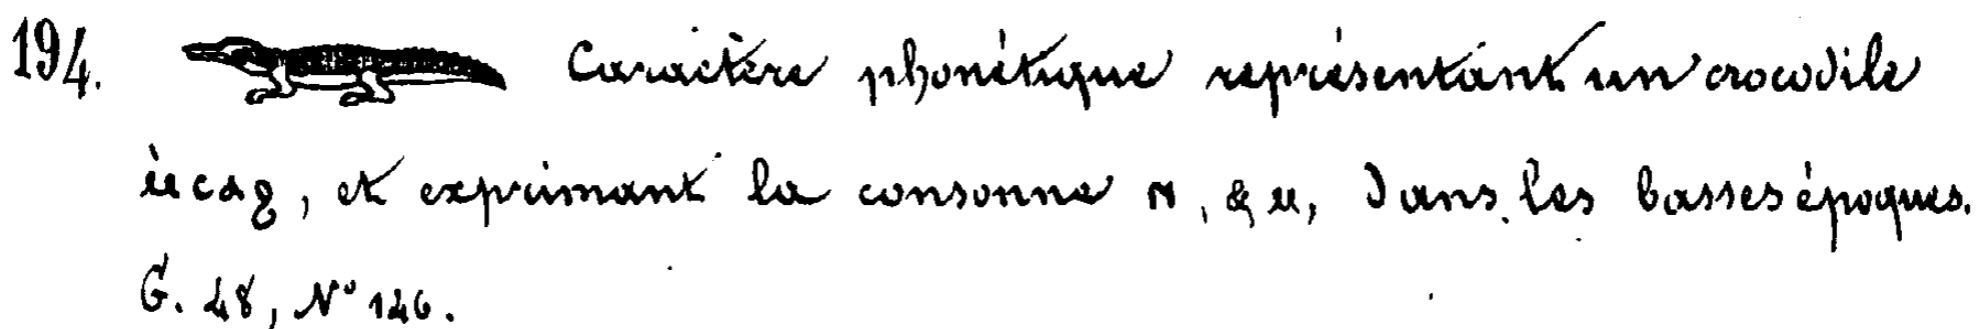 194. Caractère phonétique représentant un crocodile
ⲙ̀ⲥⲁϩ, et exprimant la consonne ⲛ, & ⲙ, dans les basses époques.
G. 48, N° 146.